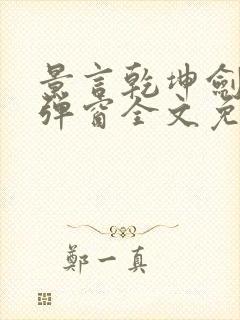 景言乾坤劍
彈窗全文免
鄭一真